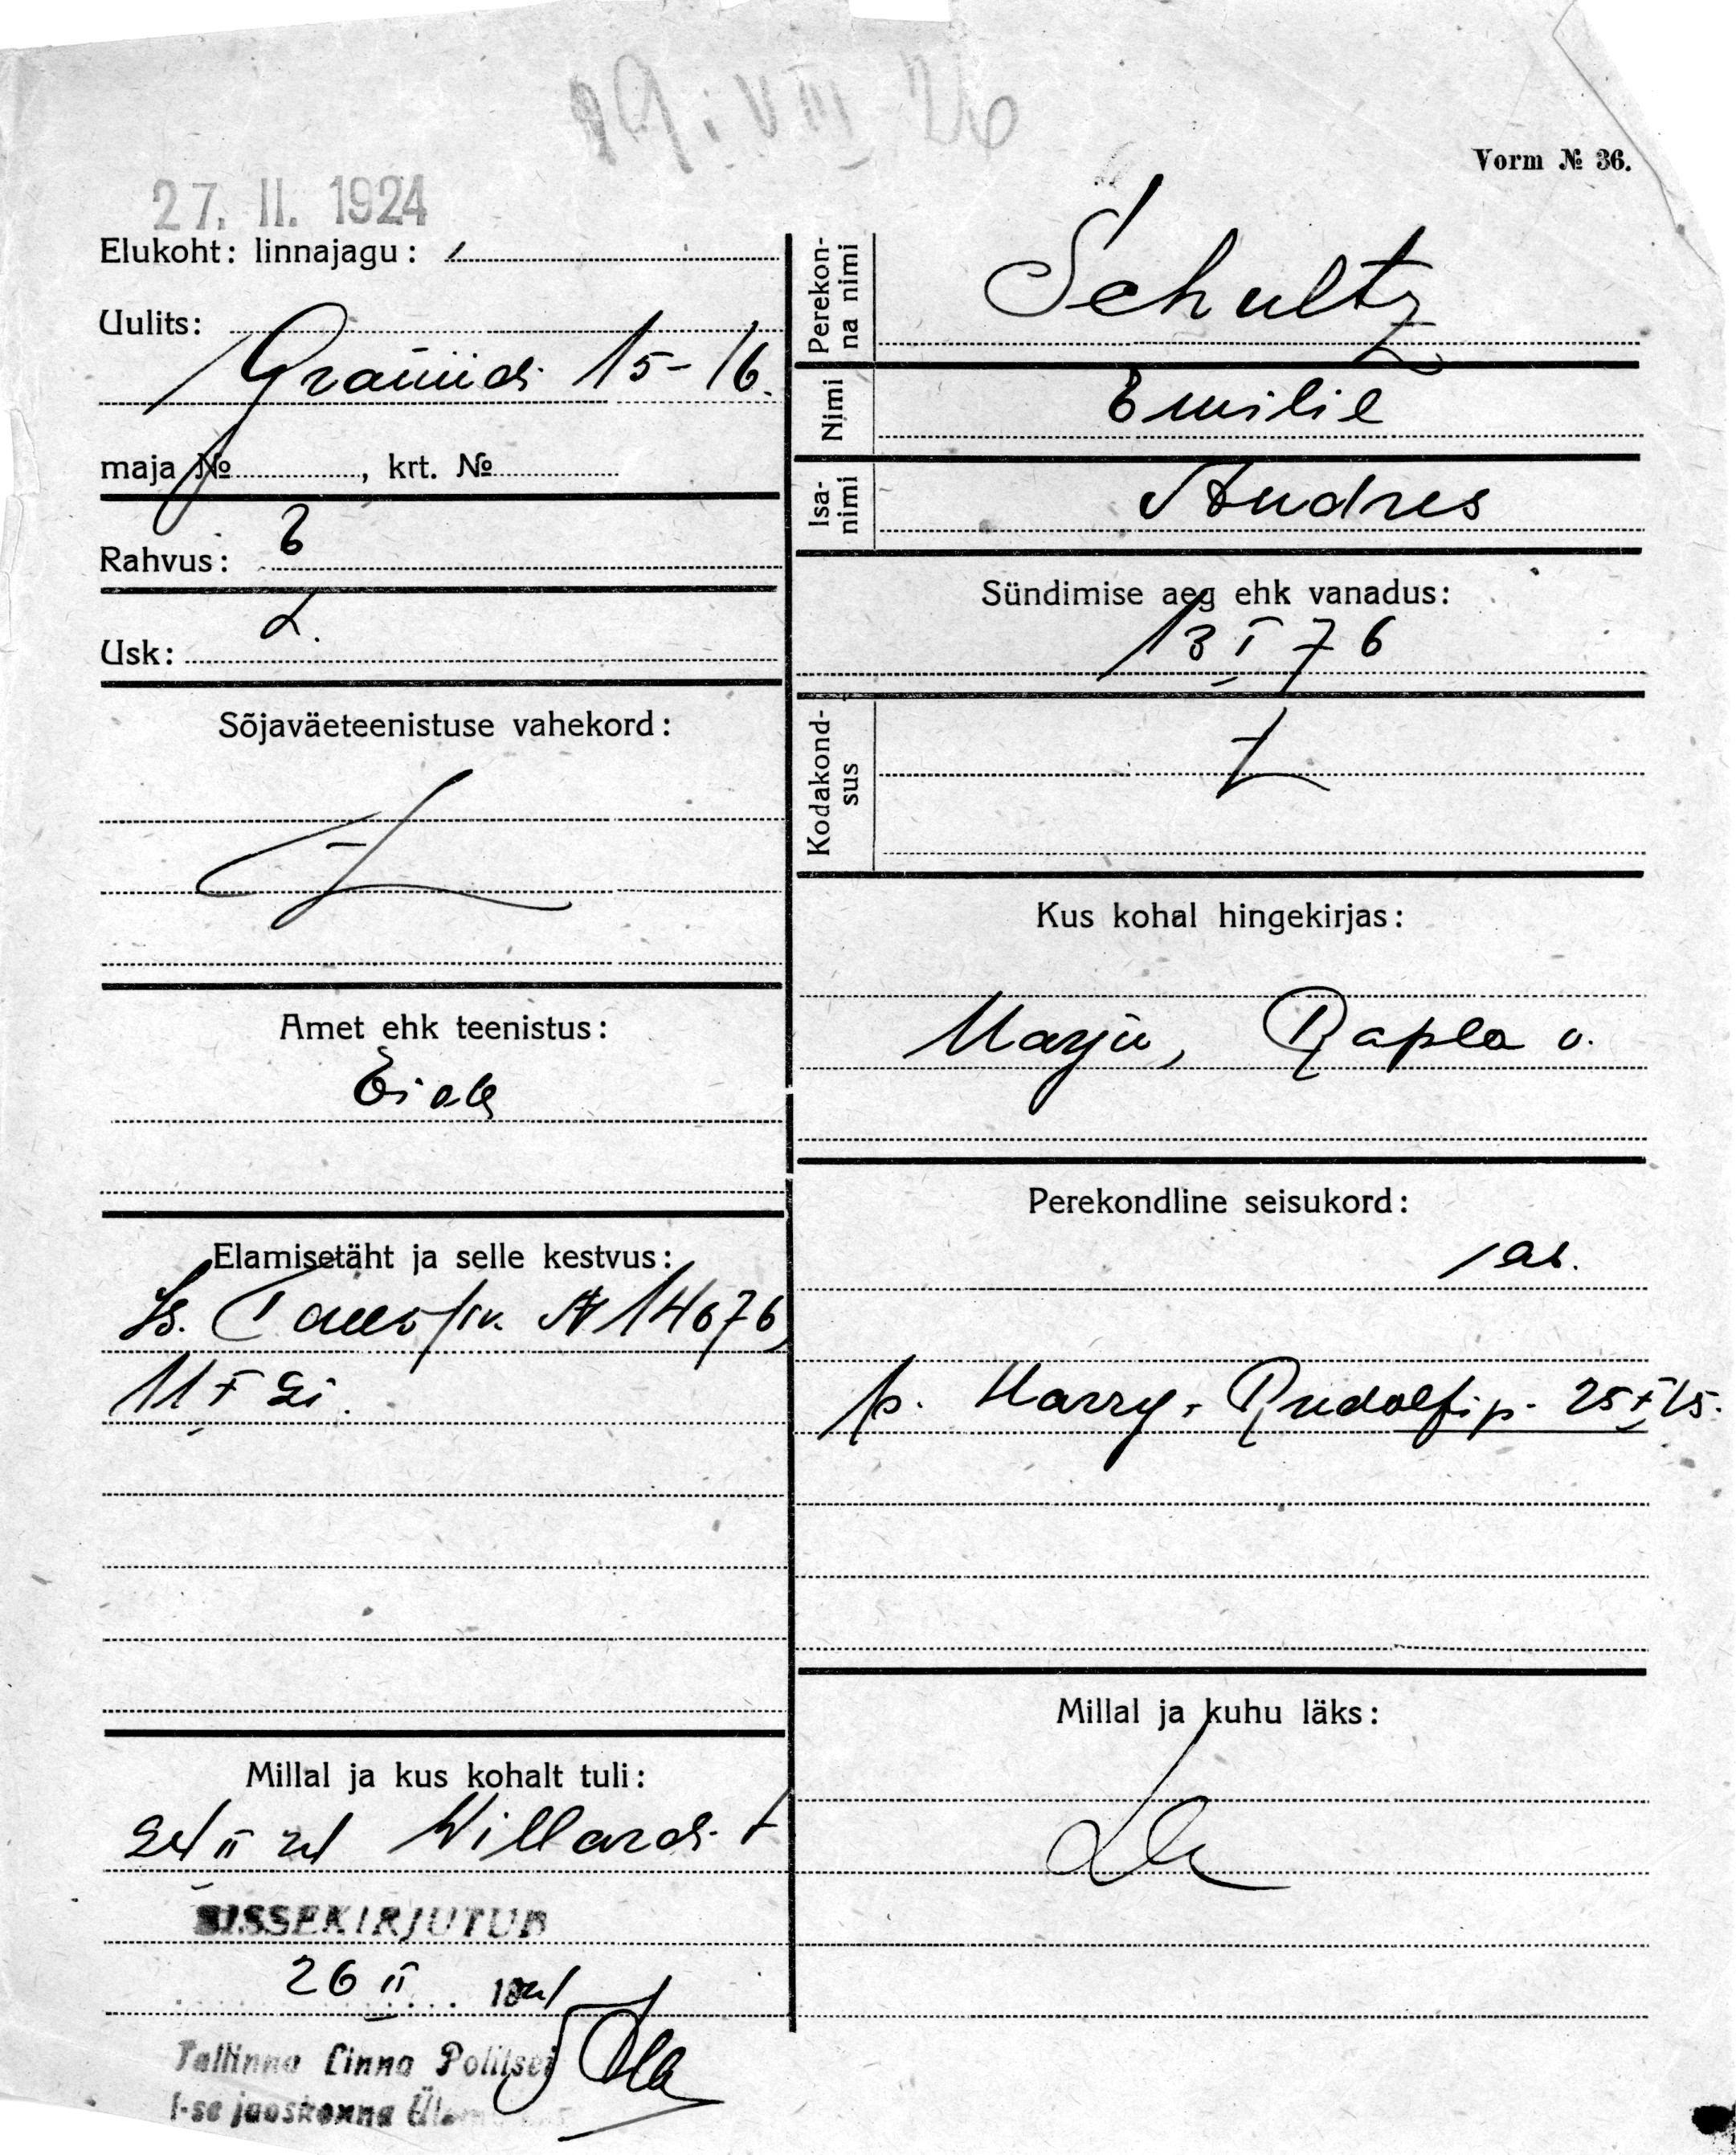 29. VIII 26
Vorm № 36.
27. II. 1924
Elukoht: linnajagu:
Uulits:
Graniidi 15-16.
maja № , krt. №
Rahvus: E
Usk: L.
Sõjaväeteenistuse vahekord:
Amet ehk teenistus:
Elamisetäht ja selle kestvus:
№ 14676
Millal ja kus kohalt tuli:
24 II 24 Willardi t
SISSEKIRJUTUD
26 II 1924
Tallinna Linna Politsei
I-se jaoskonna
Perekon-
na nimi
Schultz
Nimi
Emilie
Isa-
nimi
Andres
Sündimise aeg ehk vanadus:
13 I 76
Kodakond-
sus
Kus kohal hingekirjas:
Harju, Rapla v.
Perekondline seisukord:
p. Harry-Rudolf ip. 25 X 15.
Millal ja kuhu läks: